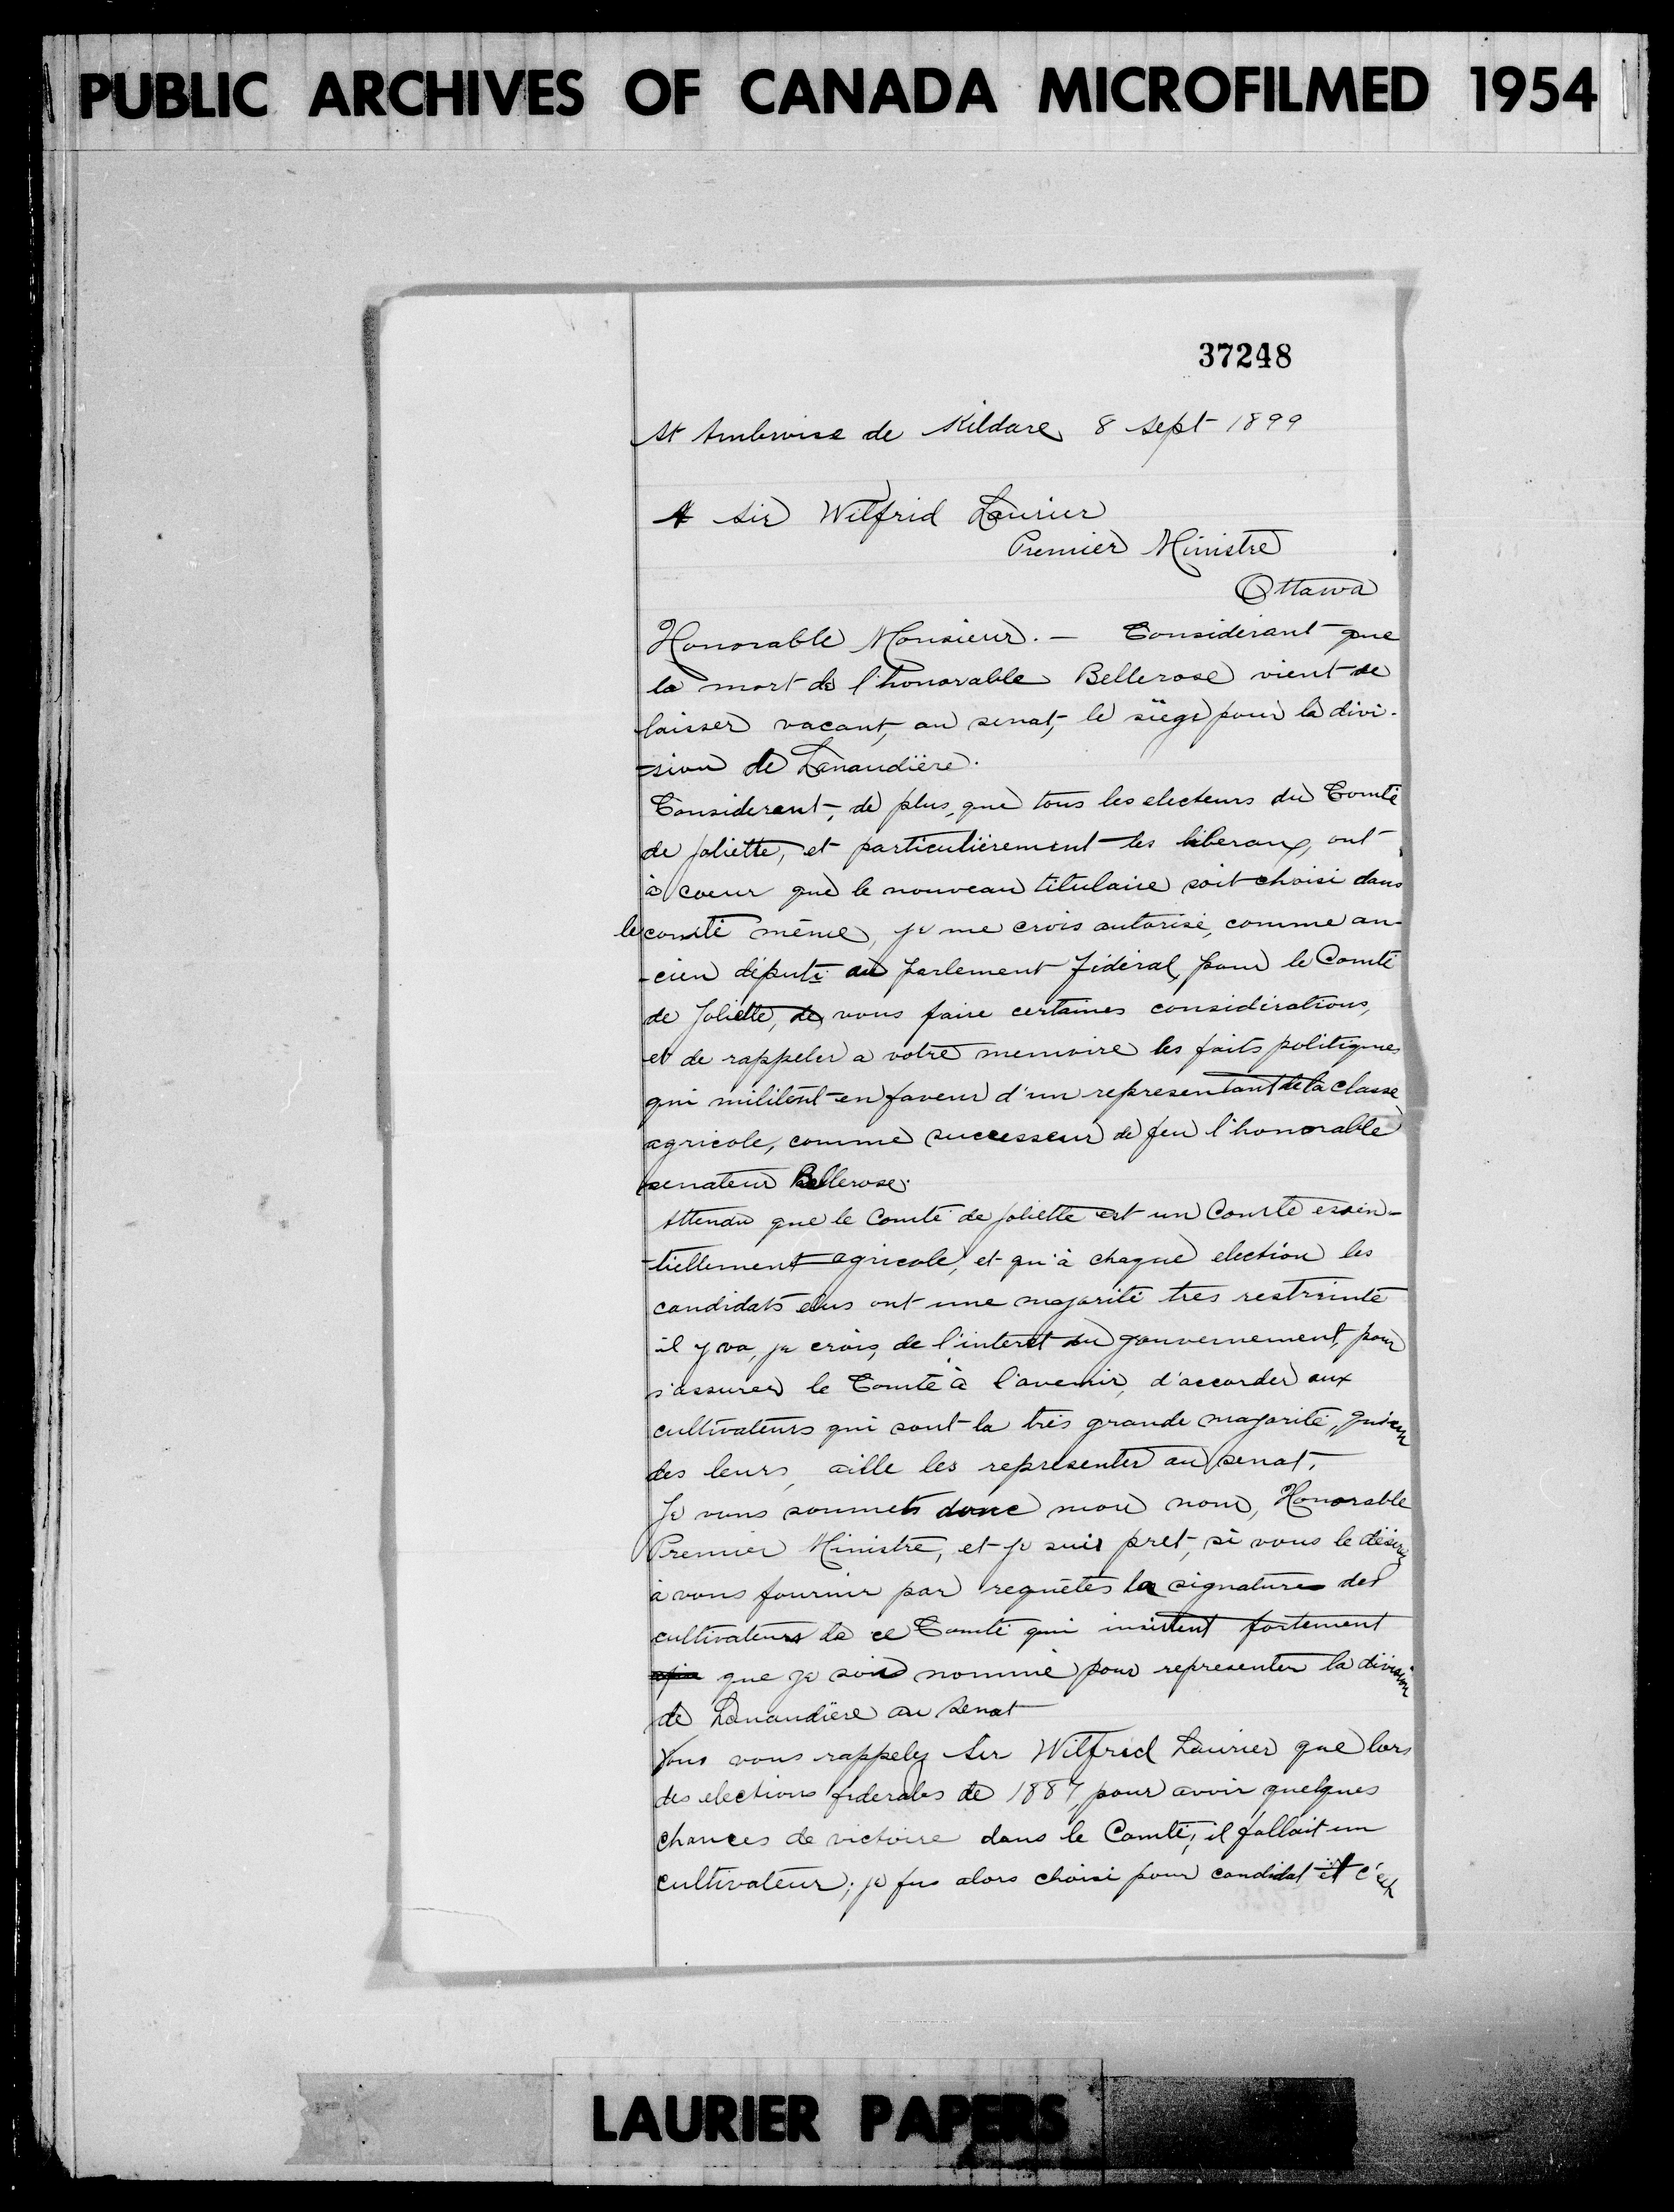 PUBLIC ARCHIVES OF CANADA MICROFILMED 1954
37248
St Ambroise de Kildare 8 Sept 1899
A Sir Wilfrid Laurier
Premier Ministre
Ottawa
Honorable Monsieur. — Considérant que
la mort de l'honorable Bellerose vient de
laisser vacant, au senat, le siège pour la divi-
-sion de Lanaudière.
Considerant, de plus, que tous les electeurs du Comté
de Joliette, et particulièrement les liberaux, ont
à coeur que le nouveau titulaire soit choisi dans
le comté même, je me crois autorisé, comme an-
-cien député au parlement fédéral, pour le Comté
de Joliette, de vous faire certaines considérations,
et de rappeler a votre memoire les faits politiques
qui militent en faveur d'un representant de la classe
agricole, comme successeur de feu l'honorable
senateur Bellerose.
Attendu que le Comté de Joliette est un Comté essen-
-tiellement agricole, et qu'à chaque election les
candidats élus ont une majorité tres restreinte
il y va, je crois, de l'interet du gouvernement, pour
s'assurer le Comté à l'avenir, d'accorder aux
cultivateurs qui sont la très grande majorité, qu'un
des leurs, aille les représenter au senat.
Je vous soumets donc mon nom, Honorable
Premier Ministre, et je suis pret, si vous le désirez
à vous fournir par requêtes la signatures des
cultivateurs de ce Comté qui insistent fortement
afin que je sois nommé pour representer la division
de Lanaudière au Senat
Vous vous rappelez Sir Wilfrid Laurier que lors
des elections féderales de 1887, pour avoir quelques
chances de victoire dans le Comté, il fallait un
cultivateur; je fus alors choisi pour candidat et c'est
LAURIER PAPERS